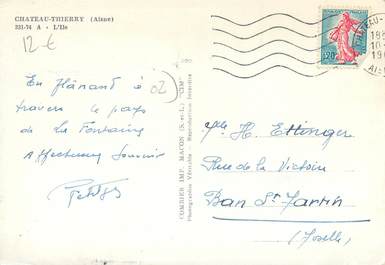 CHATEAU-THIERRY (Aisne)
221-74 A - L'Ile
12-€
02
En flânant à
travers le pays
de la Fontaine
Affectueux Souvenir
COMBIER IMP. MACON (S.-et-L.) "CIM"
Photographie Véritable - Reproduction Interdite
0,20
Mlle H. Ettinger
Rue de la Victoire
Ban St Martin
(Moselle)